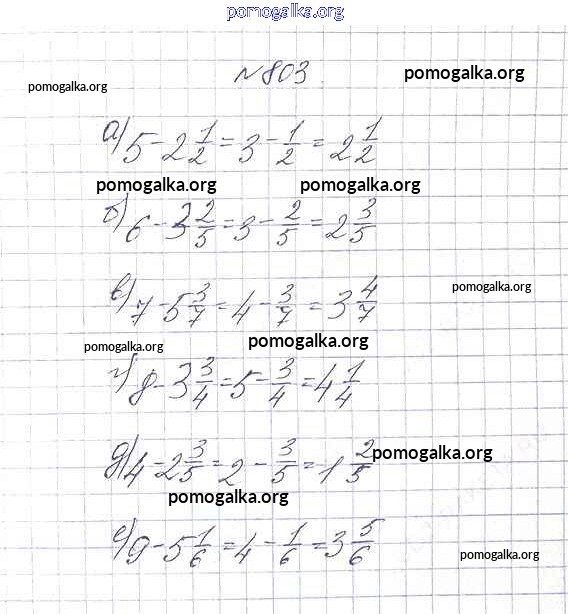 pomogalka.org
№803
pomogalka.org
pomogalka.org
а) 5 - 2 1/2 = 3 - 1/2 = 2 1/2
pomogalka.org pomogalka.org
б) 6 - 3 2/5 = 3 - 2/5 = 2 3/5
в) 7 - 5 3/7 = 4 - 3/7 = 3 4/7
pomogalka.org
pomogalka.org
pomogalka.org
г) 8 - 3 3/4 = 5 - 3/4 = 4 1/4
д) 4 - 2 3/5 = 2 - 3/5 = 1 2/5
pomogalka.org
pomogalka.org
е) 9 - 5 1/6 = 4 - 1/6 = 3 5/6
pomogalka.org